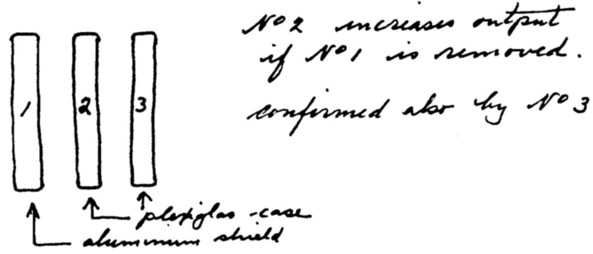 No 2 increases output
if No 1 is removed.
confirmed also by No 3
1 2 3
plexiglas-case
aluminum shield